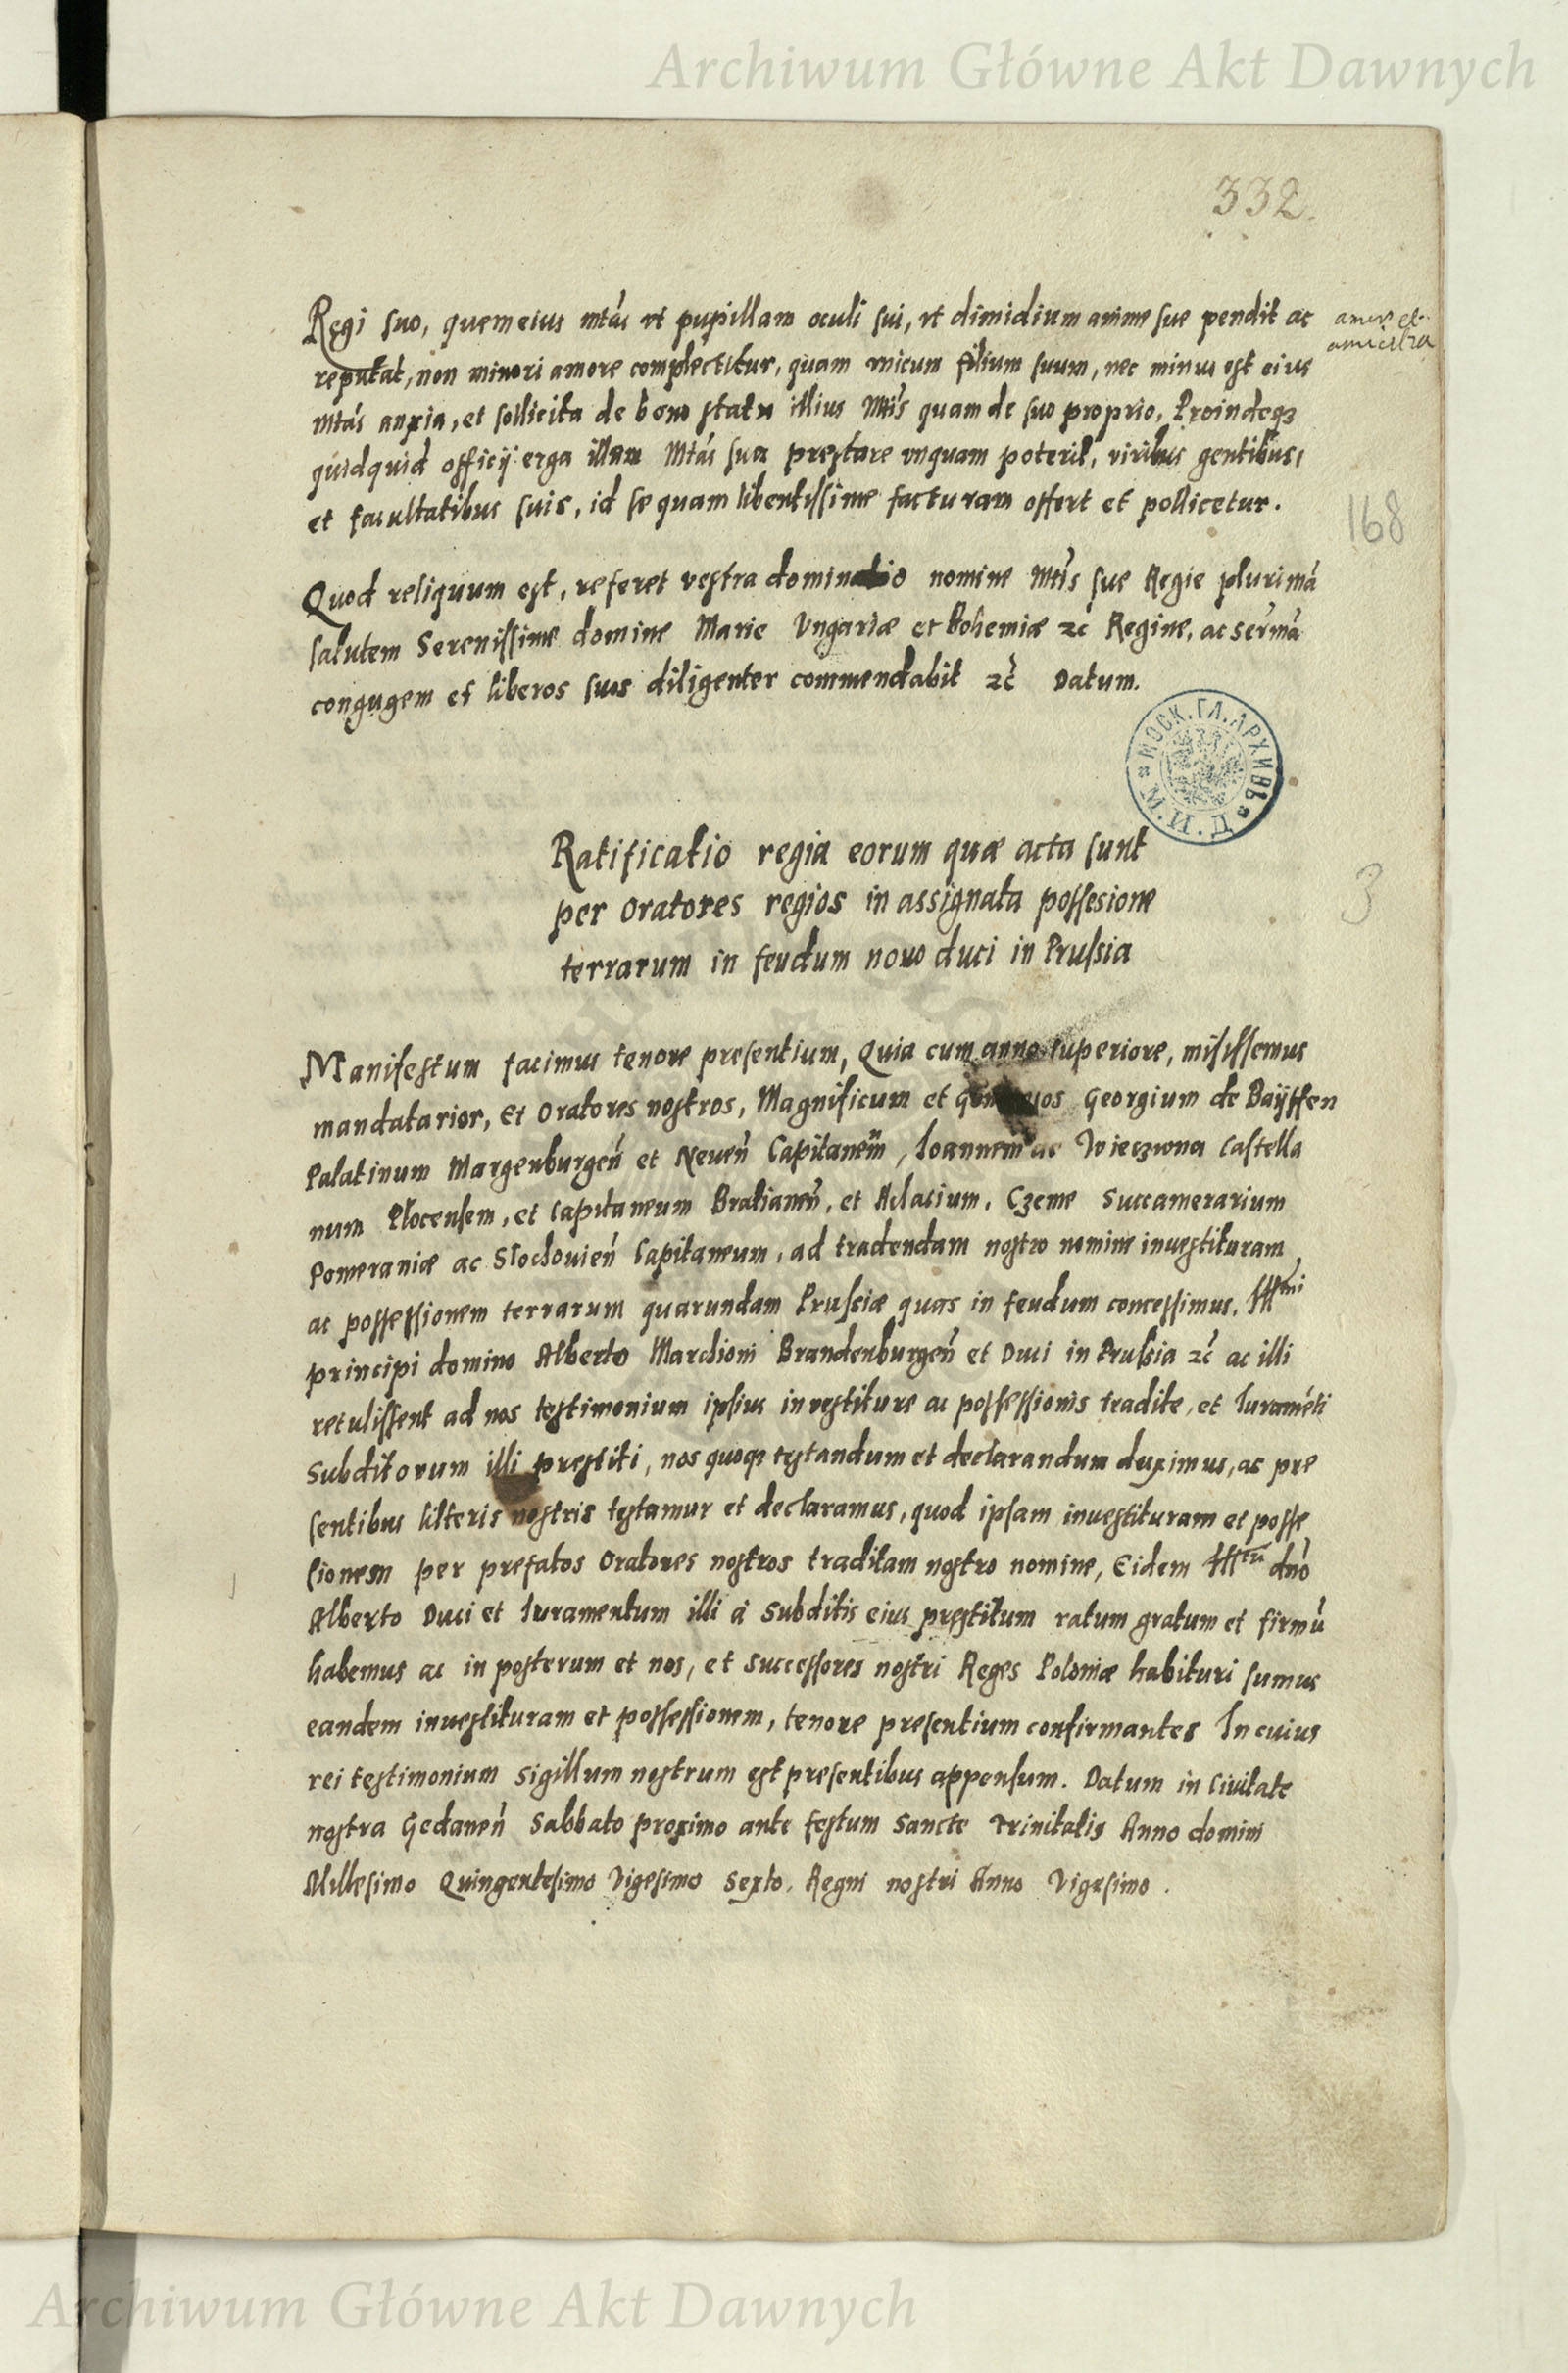 Archiwum Główne Akt Dawnych
332.
Regi suo, quem eius mtás vt pupillam oculi sui, vt dimidium anime sue pendit ac
amor et
amicitia
reputat, non minori amore complectitur, quam vnicum filium suum, nec minus est eius
mtás anxia, et sollicita de bono statu illius Mtis quam de suo proprio, Proindeqȝ
quidquid officij erga illam Mtás sua prestare vnquam poterit, viribus gentibus,
et facultatibus suis, id se quam libentissime facturam offert et pollicetur.
168
Quod reliquum est, referet vestra dominatio nomine Mtis sue Regie plurimá
salutem Serenissime domine Marie Vngariæ et Bohemiæ ꝛc Regine, ac Sermá
congugem et liberos suos diligenter commendabit ꝛc̃ Datum.
МОСК. ГЛ. АРХИВЪ М. И. Д.
Ratificatio regia eorum quæ acta sunt
per Oratores regios in assignata possesione
3
terrarum in feudum nouo duci in Prussia
Manifestum facimus tenore presentium, Quia cum anno superiore, misissemus
mandatarior, Et Oratores nostros, Magnificum et Georgium de Baÿssen
Palatinum Margenburgeñ et Neueñ Capitaneum, Ioannem ac Wieczwna Castella
num Plocensem, et Capitaneum Bratianeñ, et Achacium. Czeme Succamerarium
Pomeraniæ ac Slochouieñ Capitaneum, ad tradendam nostro nomine inuestituram
ac possessionem terrarum quarundam Prussiæ quas in feudum concessimus. Illmi
principi domino Alberto Marchioni Brandenburgeñ et Duci in Prussia ꝛc̃ ac illi
retulissent ad nos testimonium ipsius inuestiture ac possessionis tradite, et Iuraméti
Subditorum illi prestiti, nos quoqȝ testandum et declarandum duximus, ac pre
sentibus litteris nostris testamur et declaramus, quod ipsam inuestituram et posse
sionem per prefatos Oratores nostros traditam nostro nomine, Eidem dnó
Alberto Duci et Iuramentum illi á Subditis eius prestitum ratum gratum et firmú
habemus ac in posterum et nos, et Successores nostri Reges Poloniæ habituri sumus
eandem inuestituram et possessionem, tenore presentium confirmantes In cuius
rei testimonium Sigillum nostrum est presentibus appensum. Datum in Ciuitate
nostra Gedaneñ Sabbato proximo ante festum Sancte Trinitatis Anno domini
Millesimo Quingentesimo Vigesimo Sexto. Regni nostri Anno Vigesimo.
Archiwum Główne Akt Dawnych